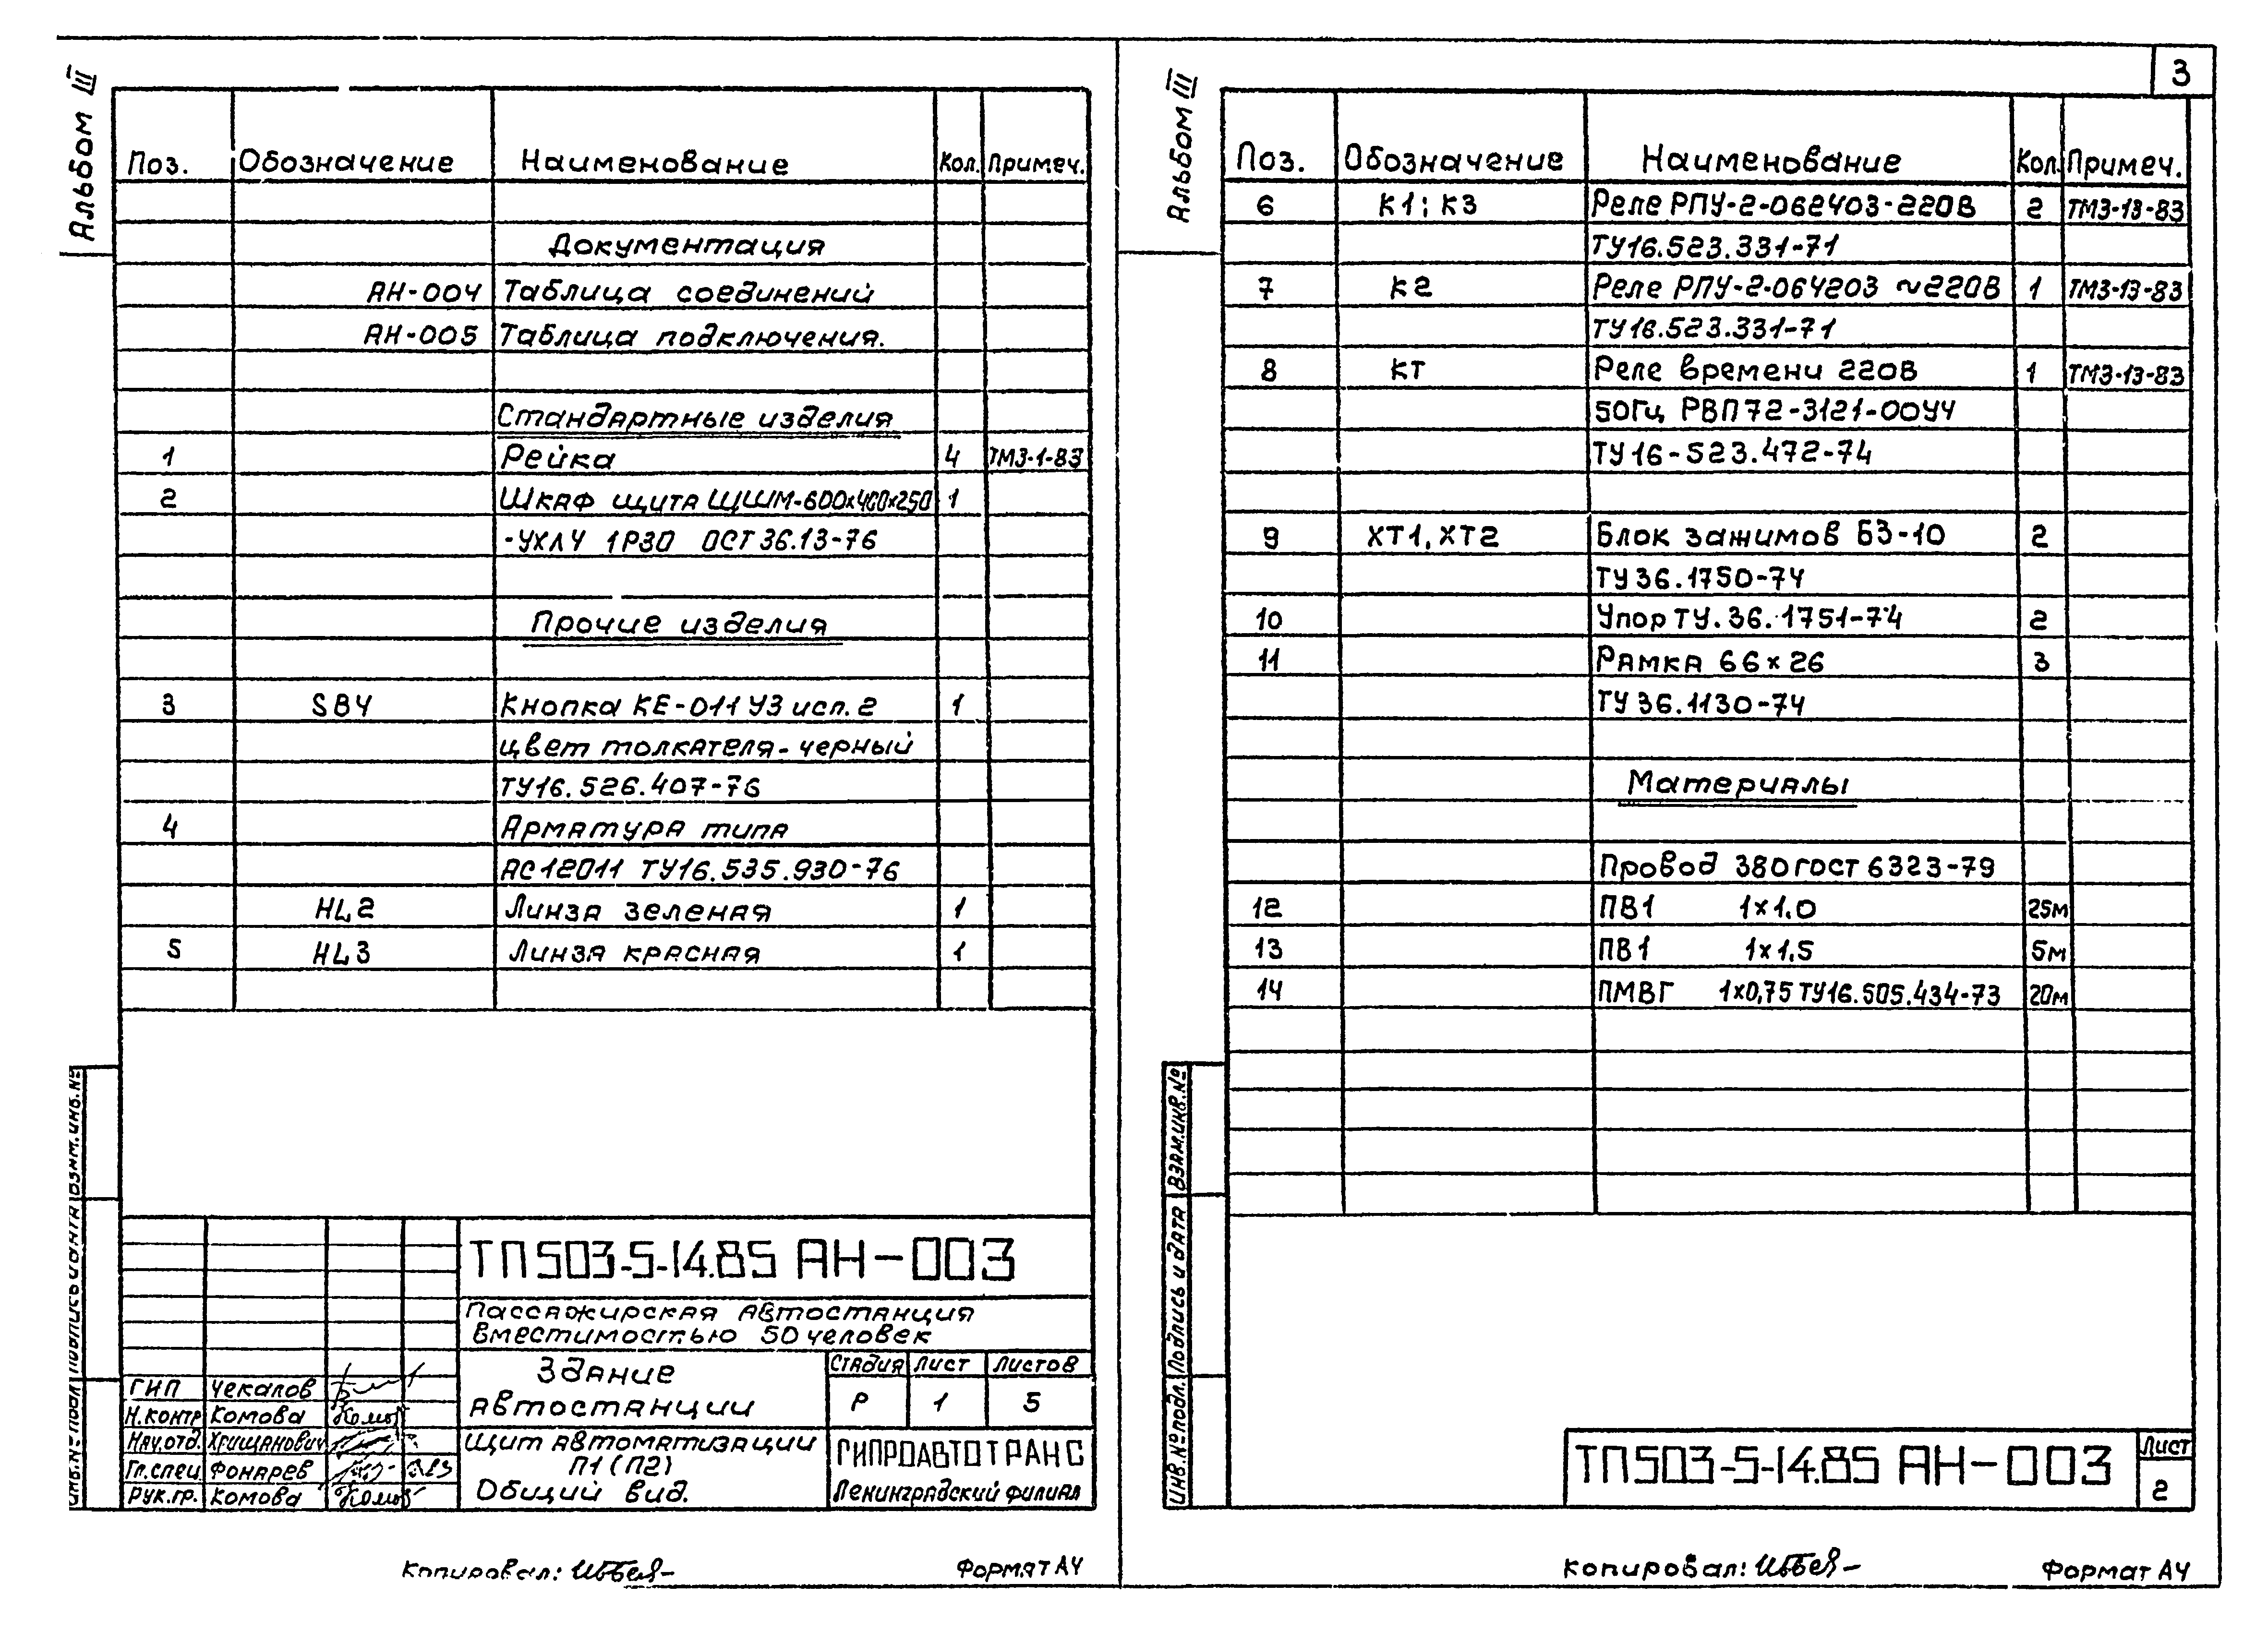 Альбом III
Поз. Обозначение Наименование Кол. Примеч.
Документация
АН-004 Таблица соединений
АН-005 Таблица подключения.
Стандартные изделия
1 Рейка 4 ТМ3-1-83
2 Шкаф щита ЩШМ-600х400х250 1
-УХЛ4 1Р30 ОСТ 36.13-76
Прочие изделия
3 SB4 Кнопка КЕ-011 У3 исп. 2 1
цвет толкателя - черный
ТУ16.526.407-76
4 Арматура типа
АС12011 ТУ16.535.930-76
HL2 Линза зеленая 1
5 HL3 Линза красная 1
ТП 503-5-14.85 АН-003
Пассажирская автостанция
вместимостью 50 человек
Здание
автостанции
Стадия Лист Листов
Р 1 5
ГИП Чекалов
Н.контр Комова
Нач.отд. Хрищанович
Гл.спец. Фонарев
Рук.гр. Комова
Щит автоматизации
П1 (П2)
Общий вид.
ГИПРОАВТОТРАНС
Ленинградский филиал
Инв.№ подл. Подпись и дата Взам.инв.№
Копировал:
Формат А4
3
Альбом III
Поз. Обозначение Наименование Кол. Примеч.
6 К1; К3 Реле РПУ-2-062403-220В 2 ТМ3-13-83
ТУ16.523.331-71
7 К2 Реле РПУ-2-064203 ~220В 1 ТМ3-13-83
ТУ16.523.331-71
8 КТ Реле времени 220В 1 ТМ3-13-83
50Гц РВП72-3121-00У4
ТУ16-523.472-74
9 ХТ1, ХТ2 Блок зажимов БЗ-10 2
ТУ 36.1750-74
10 Упор ТУ. 36. 1751-74 2
11 Рамка 66х26 3
ТУ 36.1130-74
Материалы
Провод 380 ГОСТ 6323-79
12 ПВ1 1х1,0 25м
13 ПВ1 1х1,5 5м
14 ПМВГ 1х0,75 ТУ16.505.434-73 20м
Инв.№ подл. Подпись и дата Взам.инв.№
ТП 503-5-14.85 АН-003
Лист
2
Копировал:
Формат А4